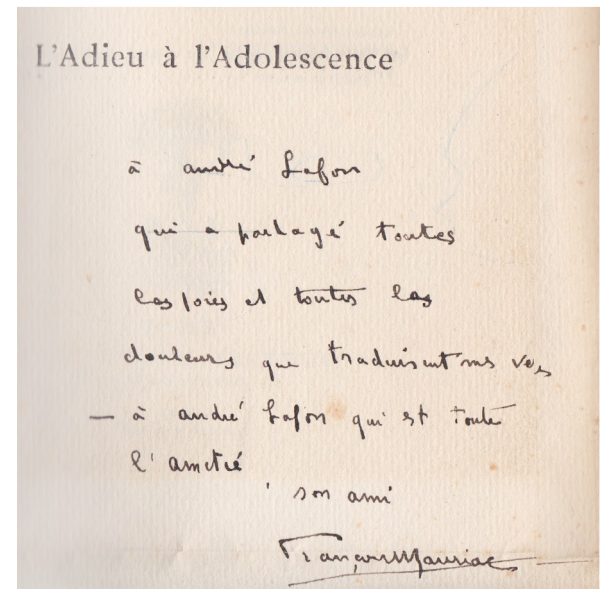 L'Adieu à l'Adolescence
à andré Lafon
qui a partagé toutes
les joies et toutes les
douleurs que traduisent mes vers
— à andré Lafon qui est toute
l'amitié
son ami
François Mauriac